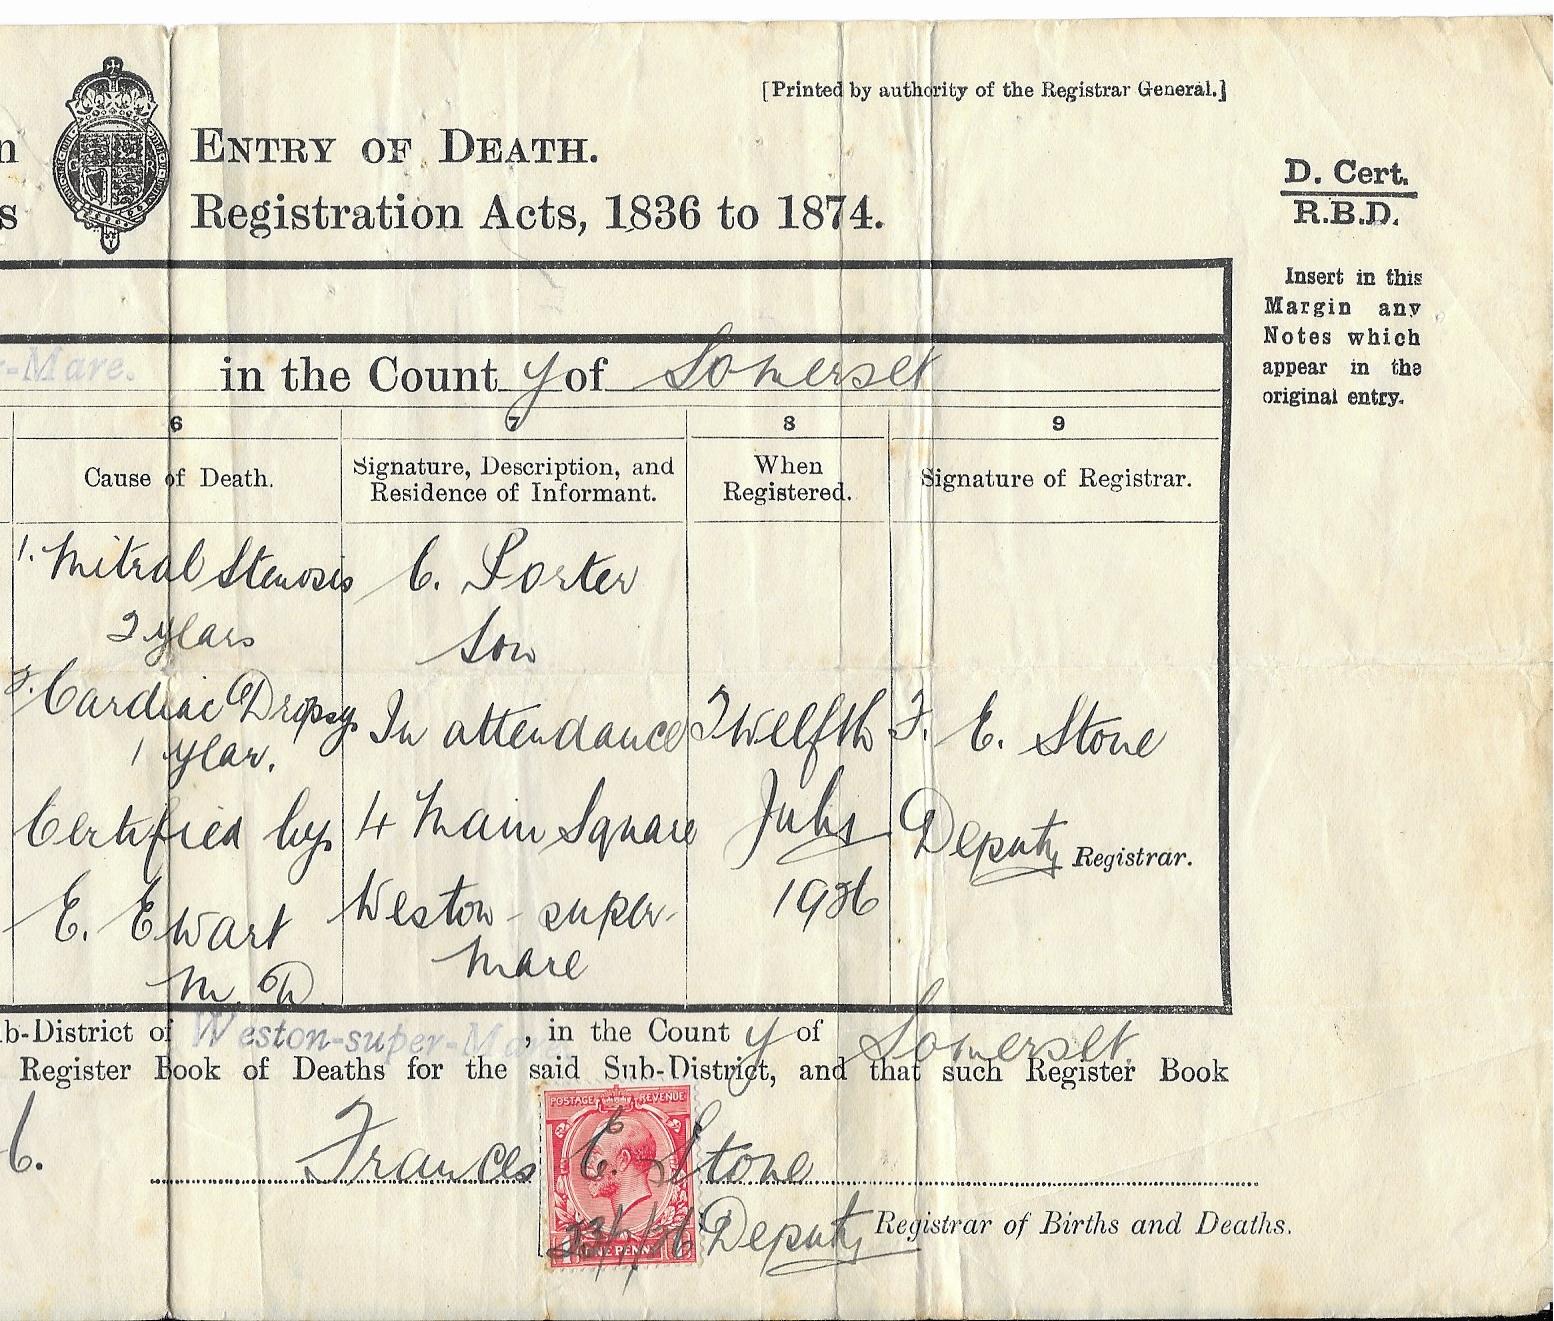 [Printed by authority of the Registrar General.]
n ENTRY OF DEATH.
s Registration Acts, 1836 to 1874.
D. Cert.
R.B.D.
Insert in this
Margin any
Notes which
appear in the
original entry.
r-Mare. in the County of Somerset
6 7 8 9
Cause of Death.
Signature, Description, and
Residence of Informant.
When
Registered.
Signature of Registrar.
1. Mitral Stenosis
2 years
2. Cardiac Dropsy
1 year.
Certified by
E. Ewart
M.D.
C. Porter
Son
In attendance
4 Main Square
Weston-super-
Mare
Twelfth
July
1926
F. E. Stone
Deputy Registrar.
b-District of Weston-super-Mare, in the County of Somerset
Register Book of Deaths for the said Sub-District, and that such Register Book
6. Frances E. Stone
POSTAGE REVENUE
ONE PENNY
Deputy Registrar of Births and Deaths.